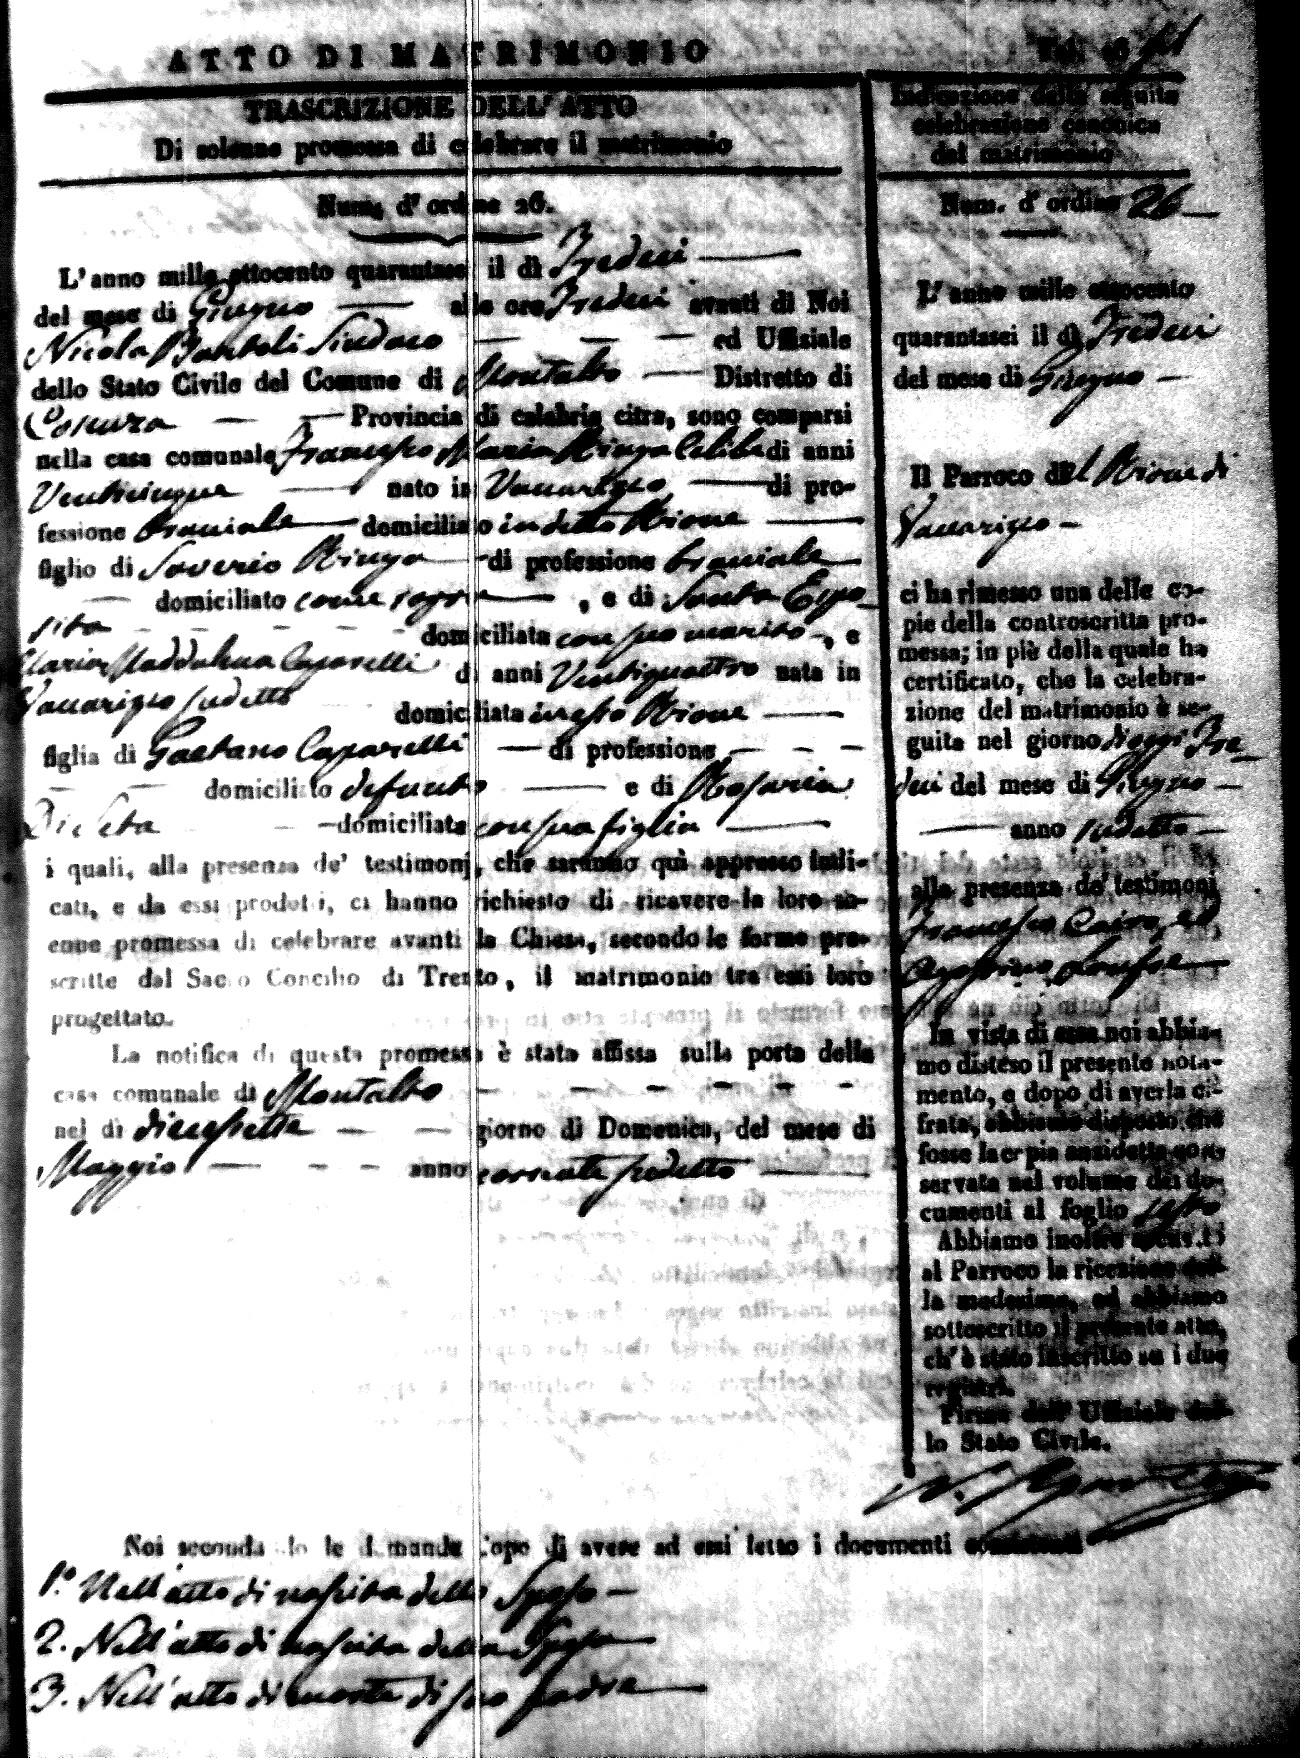 ATTO DI MATRIMONIO
TRASCRIZIONE DELL' ATTO
Di solenne promessa di celebrare il matrimonio
Num. d' ordine 26.
L' anno mille ottocento quarantasei il dì Tredeci
del mese di Giugno alle ore Tredeci avanti di Noi
Nicola Sindaco ed Uffiziale
dello Stato Civile del Comune di Montalto Distretto di
Cosenza Provincia di calabria citra, sono comparsi
nella casa comunale Francesco Maria celibe di anni
Venticinque nato in Vaccarizzo di pro-
fessione bracciale domiciliato in detto Rione
figlio di Saverio di professione bracciale
domiciliato come sopra , e di Santa Espo
sito domiciliata con suo marito , e
Maria Maddalena Caparelli di anni Ventiquattro nata in
Vaccarizzo sudetto domiciliata in esso Rione
figlia di Gaetano Caparelli di professione
domiciliato defunto e di Rosaria
domiciliata con sua figlia
i quali, alla presenza de' testimonj, che saranno quì appresso indi-
cati, e da essi prodotti, ci hanno richiesto di ricevere la loro so-
enne promessa di celebrare avanti la Chiesa, secondo le forme pre-
scritte dal Sacro Concilio di Trento, il matrimonio tra essi loro
progettato.
La notifica di questa promessa è stata affissa sulla porta della
casa comunale di Montalto
nel dì diecisette giorno di Domenica, del mese di
Maggio anno corrente sudetto
Noi secondando le dimande dopo di avere ad essi letto i documenti consistenti
1.° Nell'atto di nascita dello Sposo
2. Nell'atto di nascita della Sposa
3. Nell'atto di morte di suo padre
Indicazione della seguita
celebrazione canonica
del matrimonio
Num. d' ordine 26
L' anno mille ottocento
quarantasei il dì Tredeci
del mese di Giugno
Il Parroco del Rione di
Vaccarizzo
ci ha rimesso una delle co-
pie della controscritta pro-
messa; in piè della quale ha
certificato, che la celebra-
zione del matrimonio è se-
guita nel giorno d'oggi Tre
deci del mese di Giugno
anno sudetto
alla presenza de' testimoni
Francesco Cairo, ed
In vista di essa noi abbia-
mo disteso il presente nota-
mento, e dopo di averla ci-
frata, abbiamo disposto che
fosse la copia anzidetta con-
servata nel volume dei do-
cumenti al foglio sesto
Abbiamo inoltre accusato
al Parroco la ricezione del-
la medesima, ed abbiamo
sottoscritto il presente atto,
ch' è stato inscritto su i due
registri.
Firma dell' Uffiziale del-
lo Stato Civile.